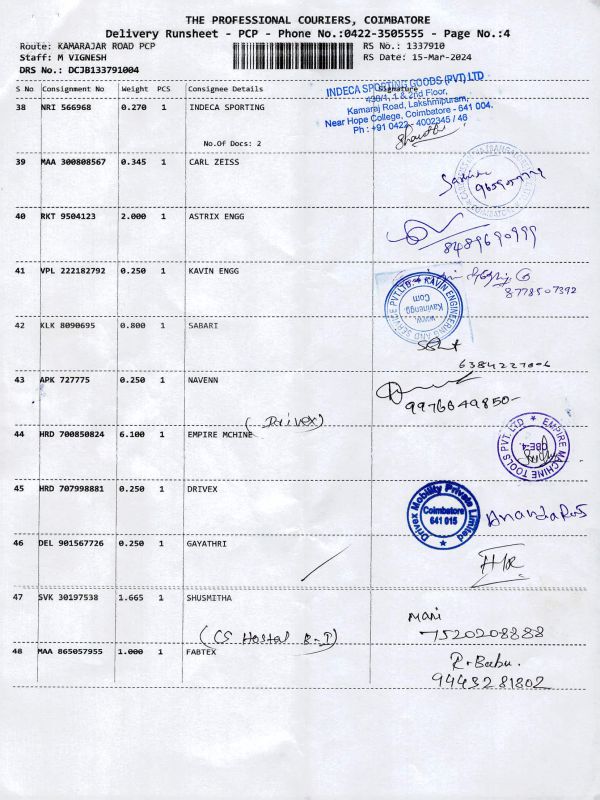 THE PROFESSIONAL COURIERS, COIMBATORE
Delivery Runsheet - PCP - Phone No.:0422-3505555 - Page No.:4
Route: KAMARAJAR ROAD PCP
RS No.: 1337910
Staff: M VIGNESH
RS Date: 15-Mar-2024
DRS No.: DCJB133791004
S No Consignment No Weight PCS Consignee Details Signature
38 NRI 566968 0.270 1 INDECA SPORTING
No.Of Docs: 2
INDECA SPORTING GOODS (PVT) LTD
439/1, 1 & 2nd Floor,
Kamaraj Road, Lakshmipuram,
Near Hope College, Coimbatore - 641 004.
Ph : +91 0422 - 4002345 / 46
39 MAA 300808567 0.345 1 CARL ZEISS
40 RKT 9504123 2.000 1 ASTRIX ENGG
8489690999
41 VPL 222182792 0.250 1 KAVIN ENGG
8778507392
KAVIN ENGINEERING AND SERVICE PVT.LTD
www.
Kavinengg
Com
42 KLK 8090695 0.800 1 SABARI
43 APK 727775 0.250 1 NAVENN
9976849850-
(Drivex)
44 HRD 700850824 6.100 1 EMPIRE MCHINE
EMPIRE MACHINE TOOLS PVT. LTD
CBE-4
45 HRD 707998881 0.250 1 DRIVEX
Drivex Mobility Private Limited
Coimbatore
641 015
46 DEL 901567726 0.250 1 GAYATHRI
HR
47 SVK 30197538 1.665 1 SHUSMITHA
Mani
7520208888
(CS Hostal R-I)
48 MAA 865057955 1.000 1 FABTEX
R. Babu.
9443281802